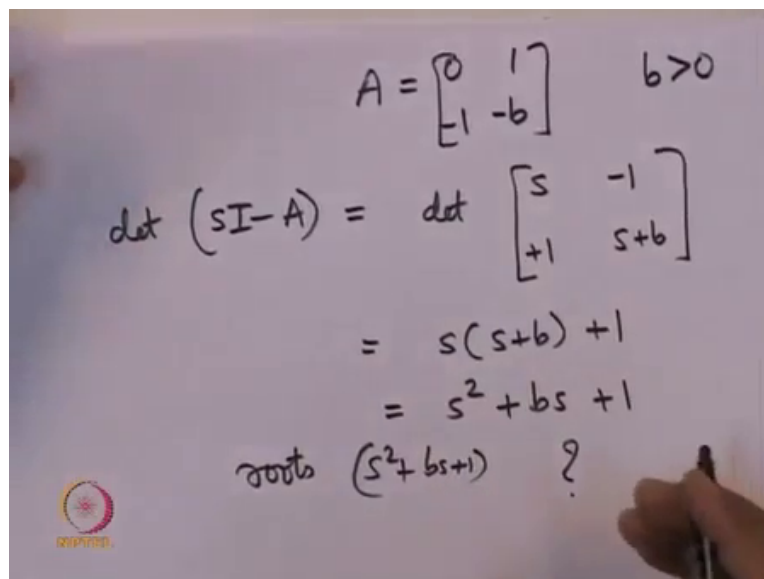 A = [0 1 b>0
-1 -b]
det (sI-A) = det [s -1
+1 s+b]
= s(s+b) +1
= s² + bs +1
roots (s²+bs+1) ?
NPTEL